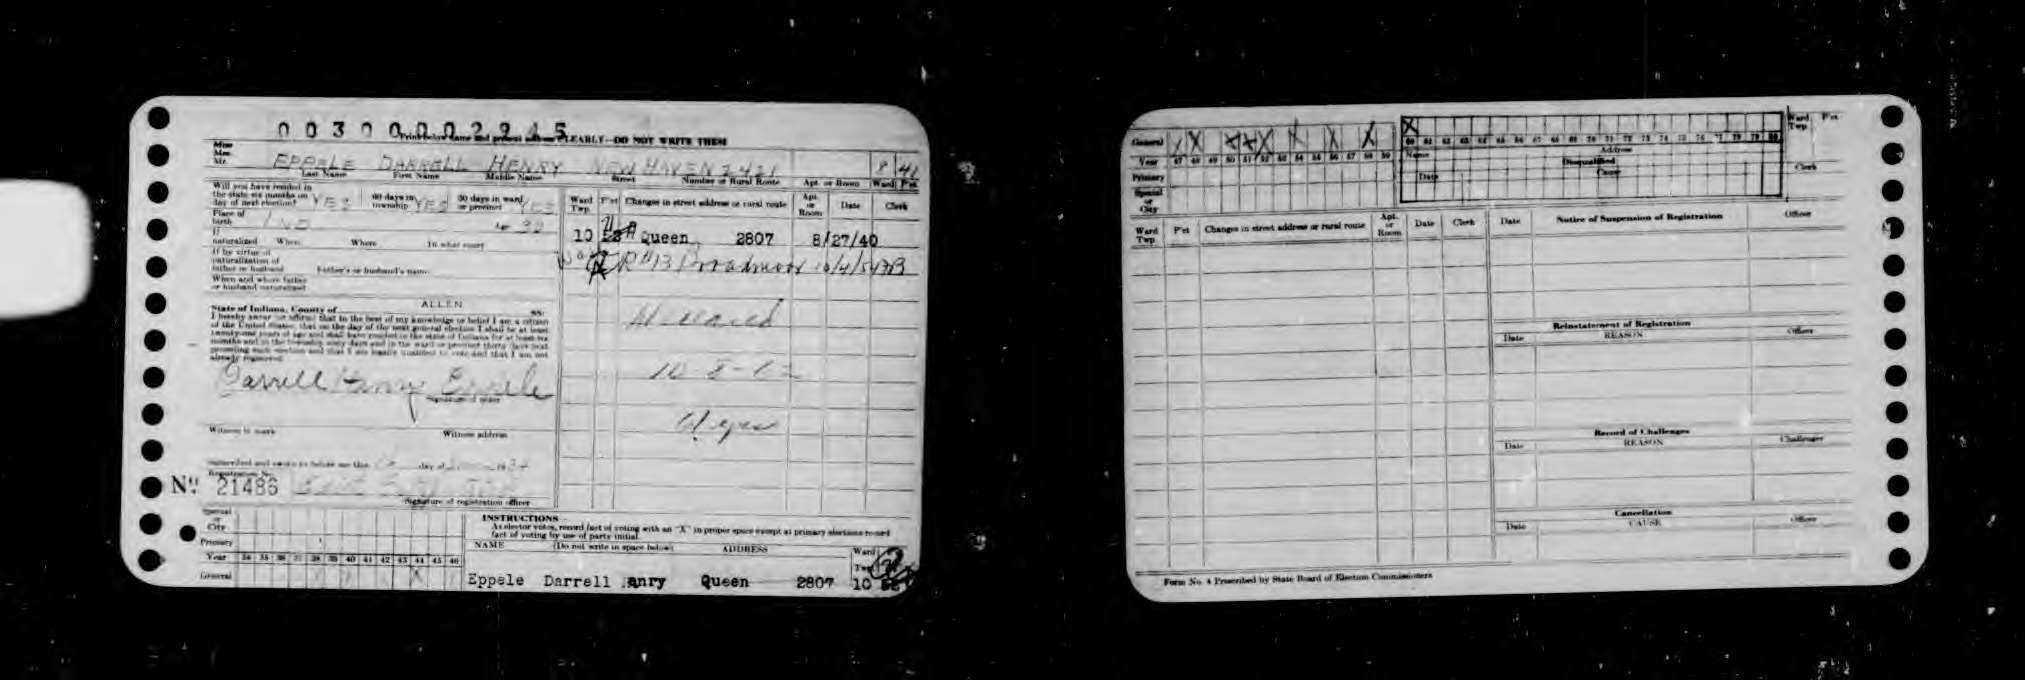 00300002945
Print below name and present address CLEARLY—DO NOT WRITE THEM
Miss
Mrs.
Mr. EPPELE DARRELL HENRY NEW HAVEN 2421 8 41
Last Name First Name Middle Name Street Number or Rural Route Apt. or Room Ward P'ct
Will you have resided in
the state six months on
day of next election? YES 60 days in township YES 30 days in ward or precinct YES
Place of birth IND Age 32
If naturalized When Where In what court
If by virtue of
naturalization of
father or husband Father's or husband's name
When and where father
or husband naturalized
ALLEN
State of Indiana, County of SS:
I hereby swear or affirm that to the best of my knowledge or belief I am a citizen
of the United States; that on the day of the next general election I shall be at least
twenty-one years of age and shall have resided in the state of Indiana for at least six
months and in the township sixty days and in the ward or precinct thirty days next
preceding such election and that I am legally qualified to vote and that I am not
already registered
Darrell Henry Eppele
Signature of voter
Witness to mark Witness address
Subscribed and sworn to before me this day of
Registration No.
No. 21486
Signature of registration officer
Ward Twp. P'ct Changes in street address or rural route Apt. or Room Date Clerk
10 Queen 2807 8/27/40
R #13 Broadmoor
Special or City
Primary
Year 34 35 36 37 38 39 40 41 42 43 44 45 46
General X
INSTRUCTIONS
As elector votes, record fact of voting with an "X" in proper space except at primary elections record
fact of voting by use of party initial.
NAME (Do not write in space below) ADDRESS Ward Twp.
Eppele Darrell Henry Queen 2807 10
General X X X X X X X
Year 47 48 49 50 51 52 53 54 55 56 57 58 59
Primary
Special or City
X
60 61 62 63 64 65 66 67 68 69 70 71 72 73 74 75 76 77 78 79 80
Ward Twp. P'ct
Name Address
Disqualified
Date Cause Clerk
Ward Twp. P'ct Changes in street address or rural route Apt. or Room Date Clerk
Date Notice of Suspension of Registration Officer
Reinstatement of Registration
Date REASON Officer
Record of Challenges
Date REASON Challenger
Cancellation
Date CAUSE Officer
Form No. 4 Prescribed by State Board of Election Commissioners